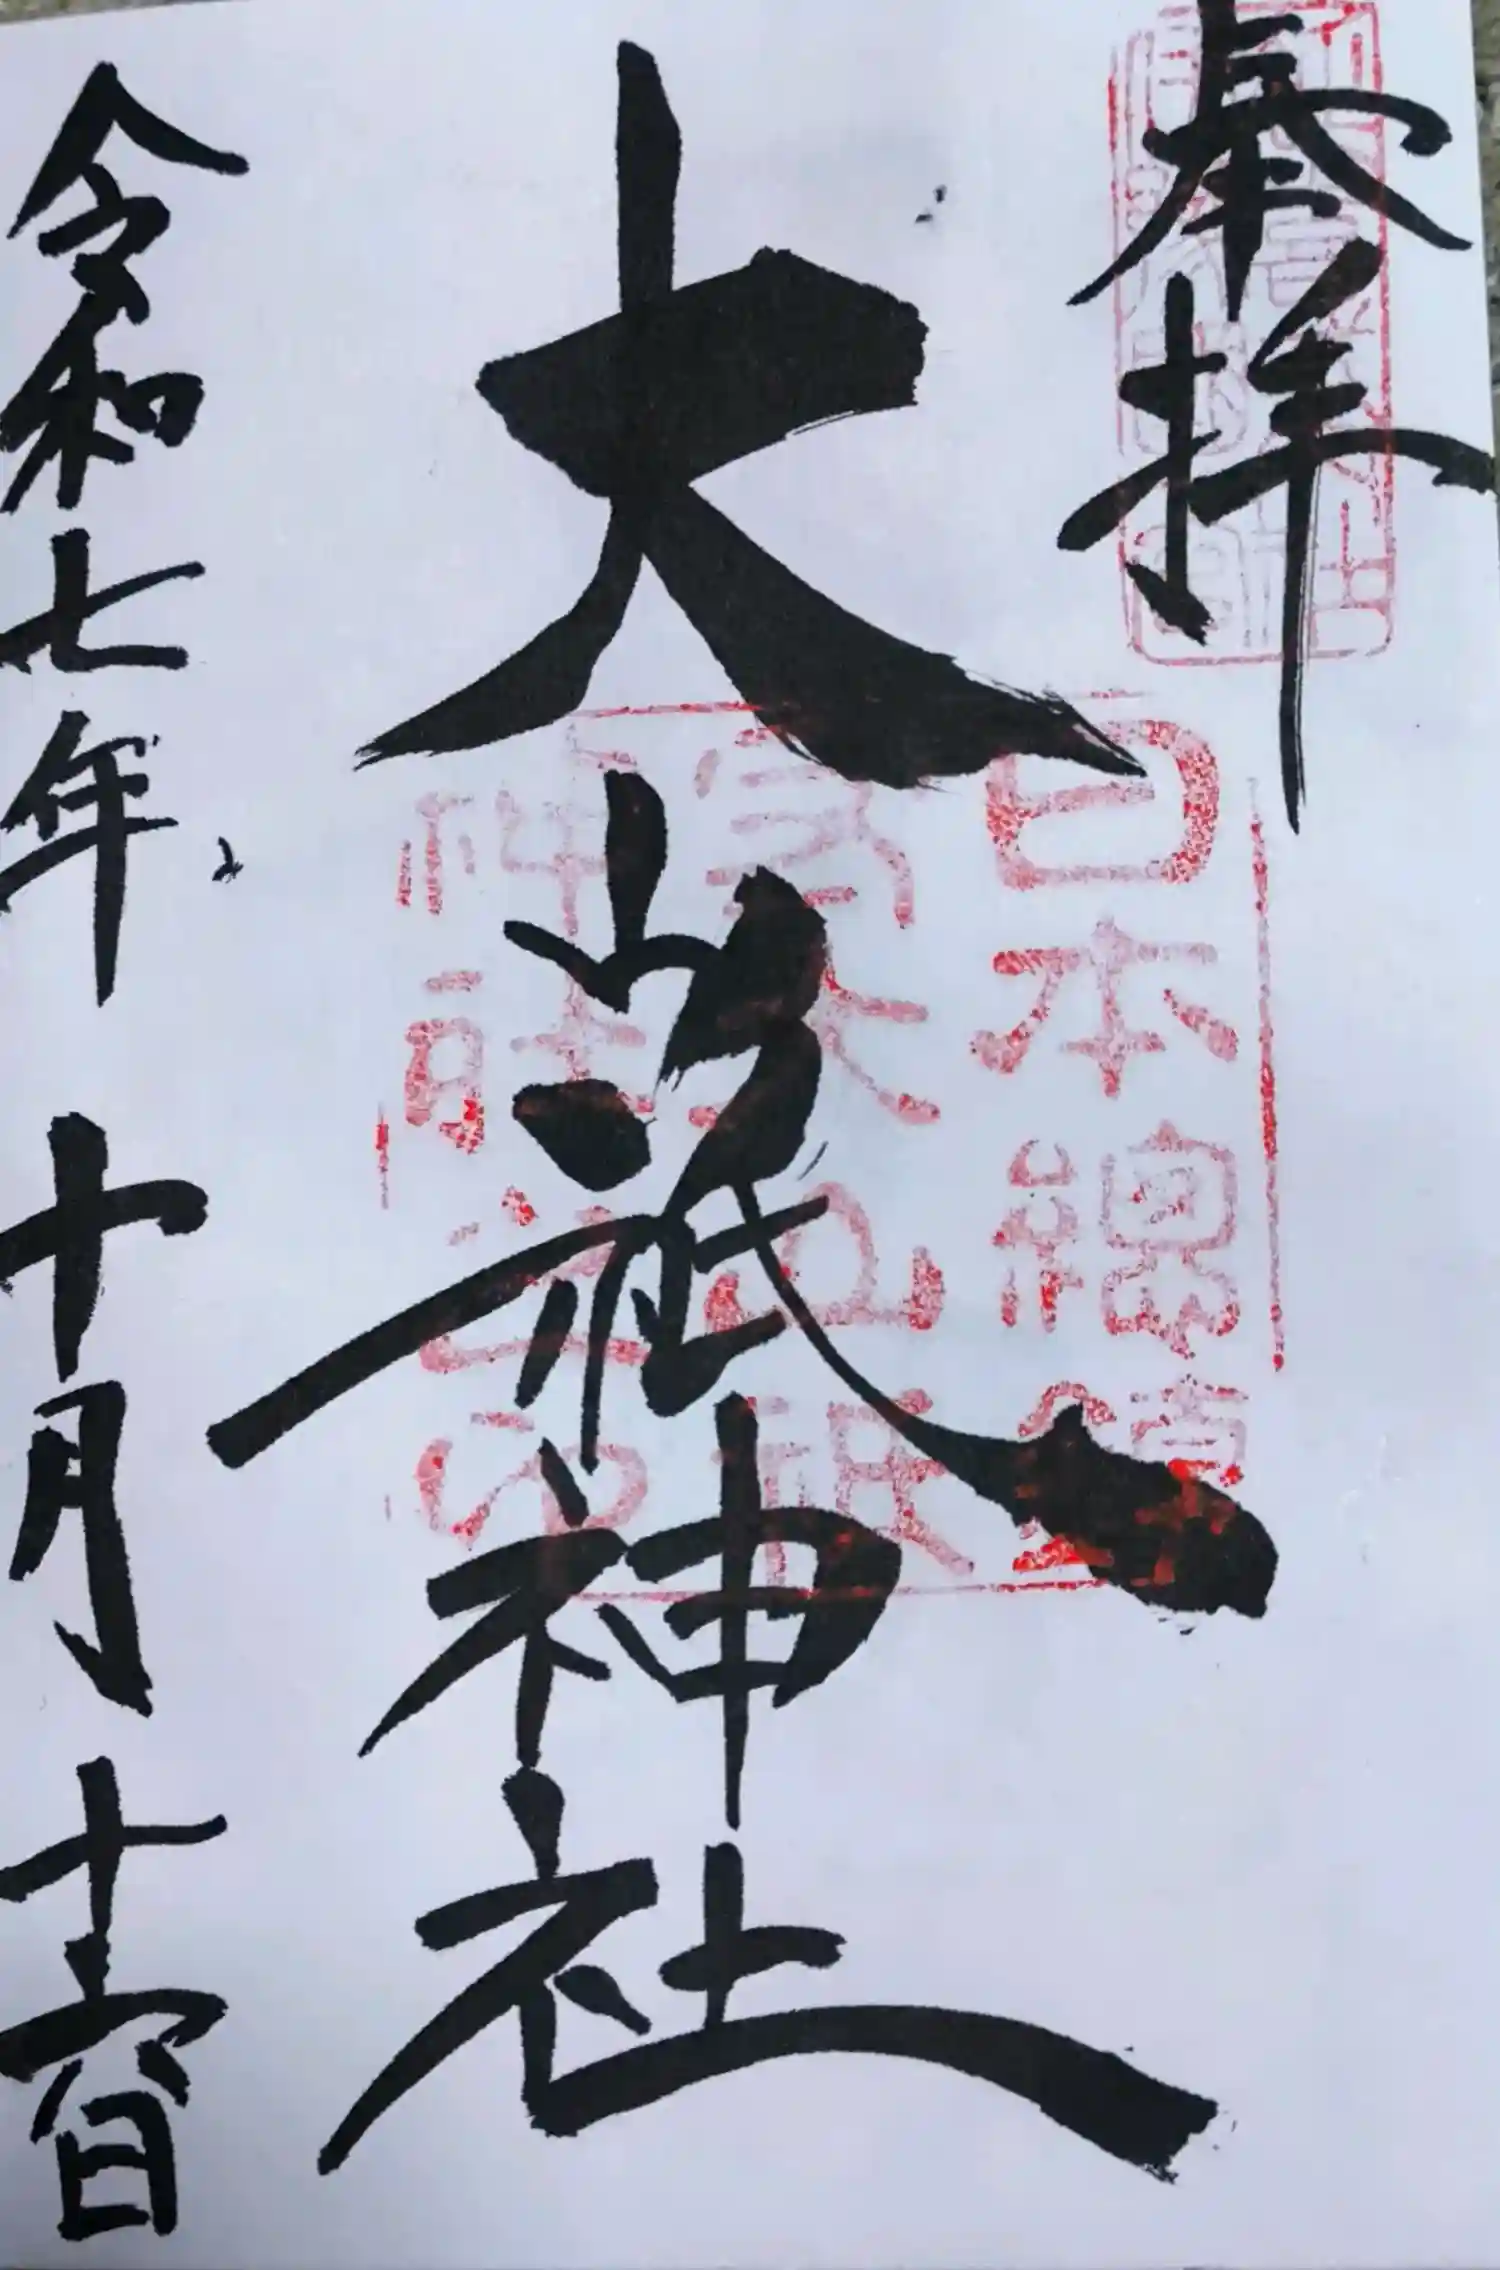 奉拝
大山祇神社
令和七年十月十六日
日本總鎮
守大山祇
神社之印